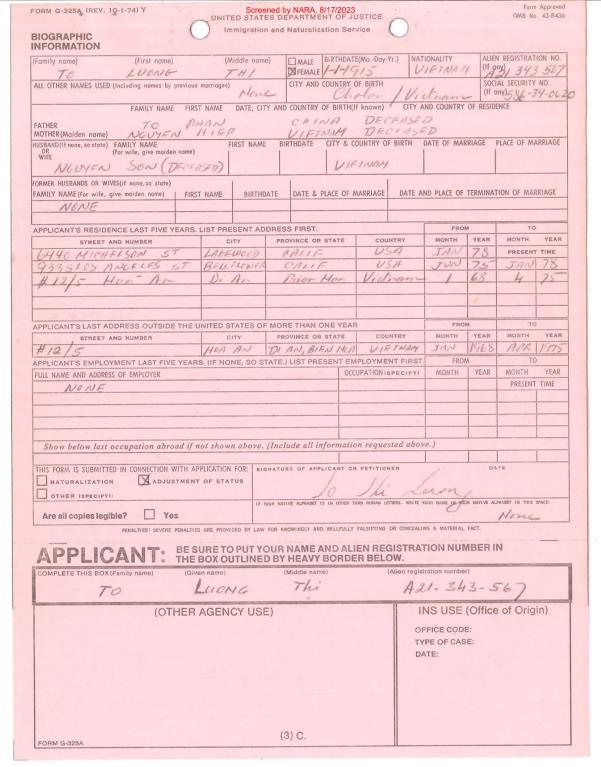 Screened by NARA, 8/17/2023
FORM G-325A (REV. 10-1-74) Y
UNITED STATES DEPARTMENT OF JUSTICE
Form Approved
OMB No. 43-R436
Immigration and Naturalization Service
BIOGRAPHIC
INFORMATION
(Family name) (First name) (Middle name) MALE BIRTHDATE (Mo.-Day-Yr.) NATIONALITY ALIEN REGISTRATION NO.
TO LUONG THI FEMALE 1-1-1915 VIETNAM (If any) A21 343 567
ALL OTHER NAMES USED (Including names by previous marriages) CITY AND COUNTRY OF BIRTH SOCIAL SECURITY NO.
None Cholon / Vietnam (If any) 586-34-0620
FAMILY NAME FIRST NAME DATE, CITY AND COUNTRY OF BIRTH(If known) CITY AND COUNTRY OF RESIDENCE
FATHER TO PHAN CHINA DECEASED
MOTHER(Maiden name) NGUYEN HIEP VIETNAM DECEASED
HUSBAND(If none, so state) FAMILY NAME FIRST NAME BIRTHDATE CITY & COUNTRY OF BIRTH DATE OF MARRIAGE PLACE OF MARRIAGE
OR (For wife, give maiden name)
WIFE
NGUYEN SON (DECEASED) VIETNAM
FORMER HUSBANDS OR WIVES(if none, so state)
FAMILY NAME (For wife, give maiden name) FIRST NAME BIRTHDATE DATE & PLACE OF MARRIAGE DATE AND PLACE OF TERMINATION OF MARRIAGE
NONE
APPLICANT'S RESIDENCE LAST FIVE YEARS. LIST PRESENT ADDRESS FIRST. FROM TO
STREET AND NUMBER CITY PROVINCE OR STATE COUNTRY MONTH YEAR MONTH YEAR
6440 MICHELSON ST LAKEWOOD CALIF USA JAN 78 PRESENT TIME
9335 LOS ANGELES ST BELLFLOWER CALIF USA JUN 75 JAN 78
#12/5 Hoa An Di An Bien Hoa Vietnam 1 63 4 75
APPLICANT'S LAST ADDRESS OUTSIDE THE UNITED STATES OF MORE THAN ONE YEAR FROM TO
STREET AND NUMBER CITY PROVINCE OR STATE COUNTRY MONTH YEAR MONTH YEAR
#12/5 HOA AN DI AN, BIEN HOA VIETNAM JAN 1968 APR 1975
APPLICANT'S EMPLOYMENT LAST FIVE YEARS. (IF NONE, SO STATE.) LIST PRESENT EMPLOYMENT FIRST. FROM TO
FULL NAME AND ADDRESS OF EMPLOYER OCCUPATION (SPECIFY) MONTH YEAR MONTH YEAR
NONE PRESENT TIME
Show below last occupation abroad if not shown above. (Include all information requested above.)
THIS FORM IS SUBMITTED IN CONNECTION WITH APPLICATION FOR: SIGNATURE OF APPLICANT OR PETITIONER DATE
NATURALIZATION ADJUSTMENT OF STATUS
OTHER (SPECIFY): To Thi Luong
IF YOUR NATIVE ALPHABET IS IN OTHER THAN ROMAN LETTERS, WRITE YOUR NAME IN YOUR NATIVE ALPHABET IN THIS SPACE:
Are all copies legible? Yes None
PENALTIES: SEVERE PENALTIES ARE PROVIDED BY LAW FOR KNOWINGLY AND WILLFULLY FALSIFYING OR CONCEALING A MATERIAL FACT.
APPLICANT: BE SURE TO PUT YOUR NAME AND ALIEN REGISTRATION NUMBER IN
THE BOX OUTLINED BY HEAVY BORDER BELOW.
COMPLETE THIS BOX (Family name) (Given name) (Middle name) (Alien registration number)
TO LUONG Thi A21-343-567
(OTHER AGENCY USE) INS USE (Office of Origin)
OFFICE CODE:
TYPE OF CASE:
DATE:
(3) C.
FORM G-325A